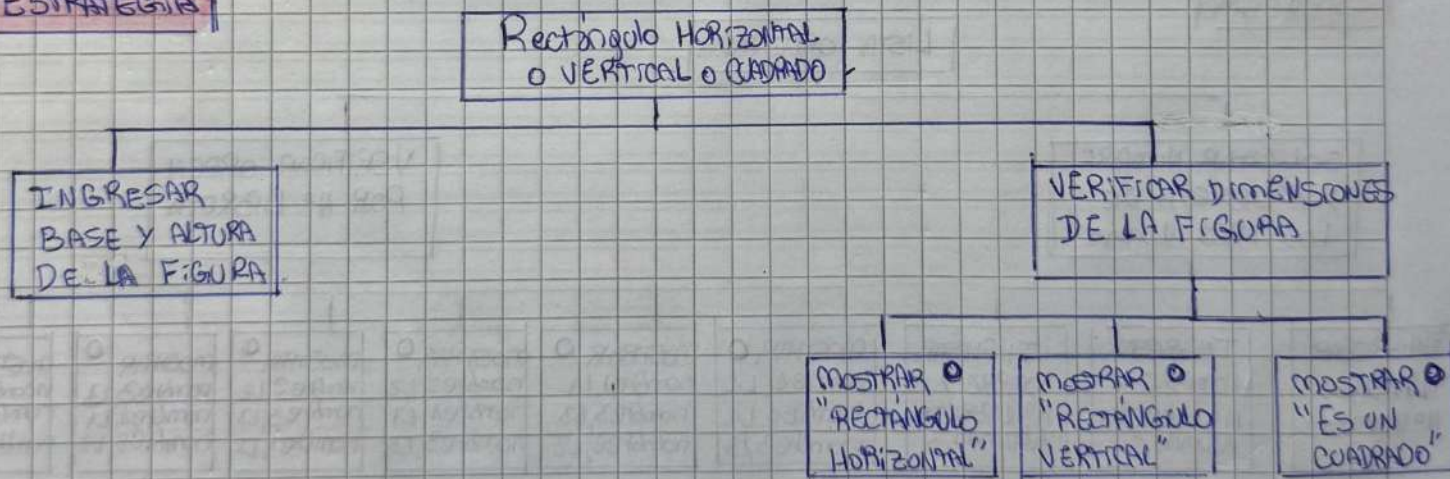 ESTRATEGIA
Rectángulo HORIZONTAL
O VERTICAL O CUADRADO
INGRESAR
BASE Y ALTURA
DE LA FIGURA
VERIFICAR DIMENSIONES
DE LA FIGURA
MOSTRAR
"RECTÁNGULO
HORIZONTAL"
MOSTRAR
"RECTÁNGULO
VERTICAL"
MOSTRAR
"ES UN
CUADRADO"